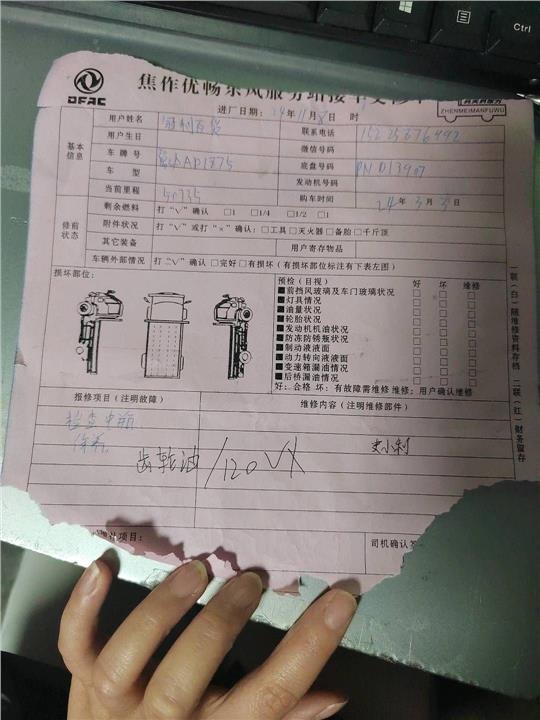 Ctrl
DFAC
焦作优畅东风服务站接车
ZHENMEIFUWU
进厂日期：24年11月8日 时
用户姓名
联系电话 15225676492
用户生日
微信号码
基本信息
车牌号
底盘号码
车型
发动机号码
当前里程
购车时间 24年3月3日
修前状态
剩余燃料 打“V”确认 □1 □1/4 □1/2 □1
附件状况 打“V”或打“×”确认：□工具□灭火器□备胎□千斤顶
其它装备 用户寄存物品
车辆外部情况 打“V”确认 □完好□有损坏（有损坏部位标注有下表左图）
损坏部位：
预检（目视） 好 坏 维修
■前挡风玻璃及车门玻璃状况 □ □ □
■灯具情况 □ □ □
■油量状况 □ □ □
■轮胎状况 □ □ □
■发动机机油状况 □ □ □
■防冻防锈瓶状况 □ □ □
■制动液液面 □ □ □
■动力转向液液面 □ □ □
■变速箱漏油情况 □ □ □
■后桥漏油情况 □ □ □
好：合格 坏：有故障需维修 维修：用户确认维修
报修项目（注明故障） 维修内容（注明维修部件）
检查中桥
保养
齿轮油/120VX
史小利
项目：
司机确认
一联（白）随维修资料存档 二联（红）财务留存